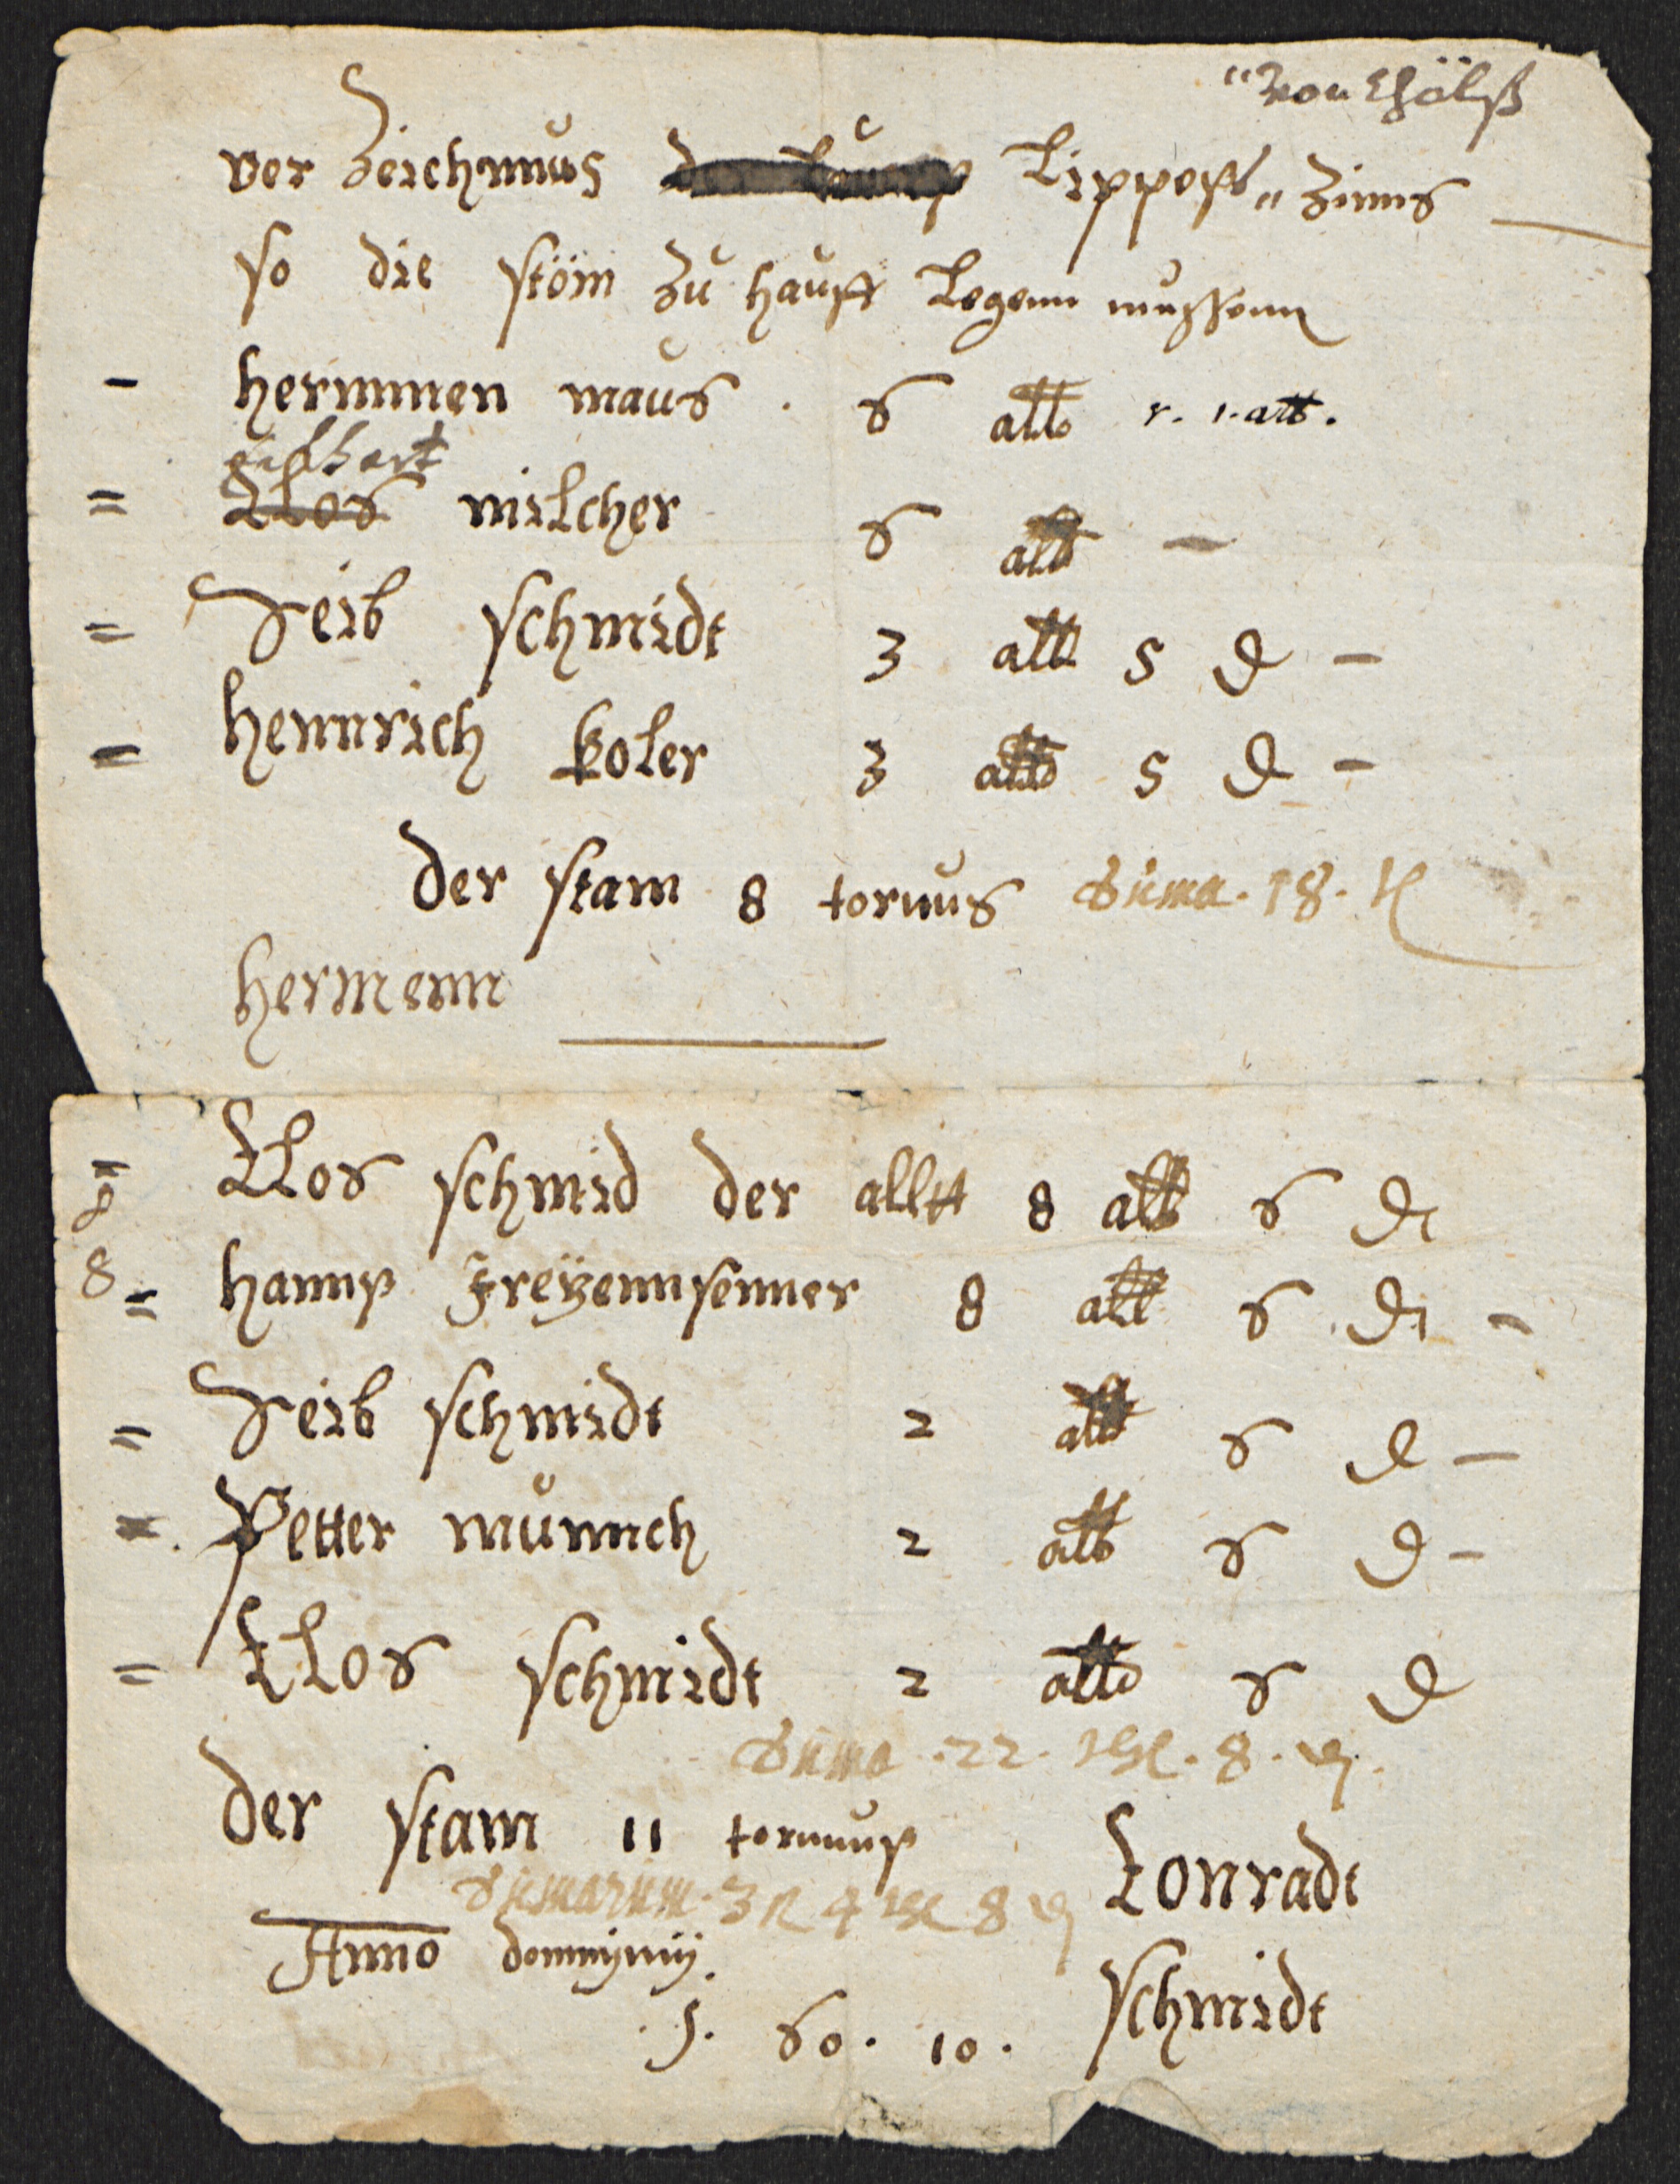 ver Zeichnus Lippess" Zinns
so die stöm zu hauff Legenn mussenn
- hermnen maus . 6 alb r. 1. alb.
= Clos milcher 6 alb -
= Seib schmidt 3 alb 5 d -
= hennrich koler 3 alb 5 d -
der stam 8 tornus Suma . 18 .
hermenn
= Clos schmid der alltt 8 alb 6 d
8 = hannß Freÿennsenner 8 alb 6 d -
= Seib schmidt 2 alb 6 d -
= Petter munnch 2 alb 6 d -
= Clos schmidt 2 alb 6 d
Suma . 22 . alb . 8 . d .
der stam 11 tornnuß
Conradt
Sumarum . 3 fl 4 alb 8 d
Anno dommÿnÿ.
schmidt
. J . 60 . 10 .